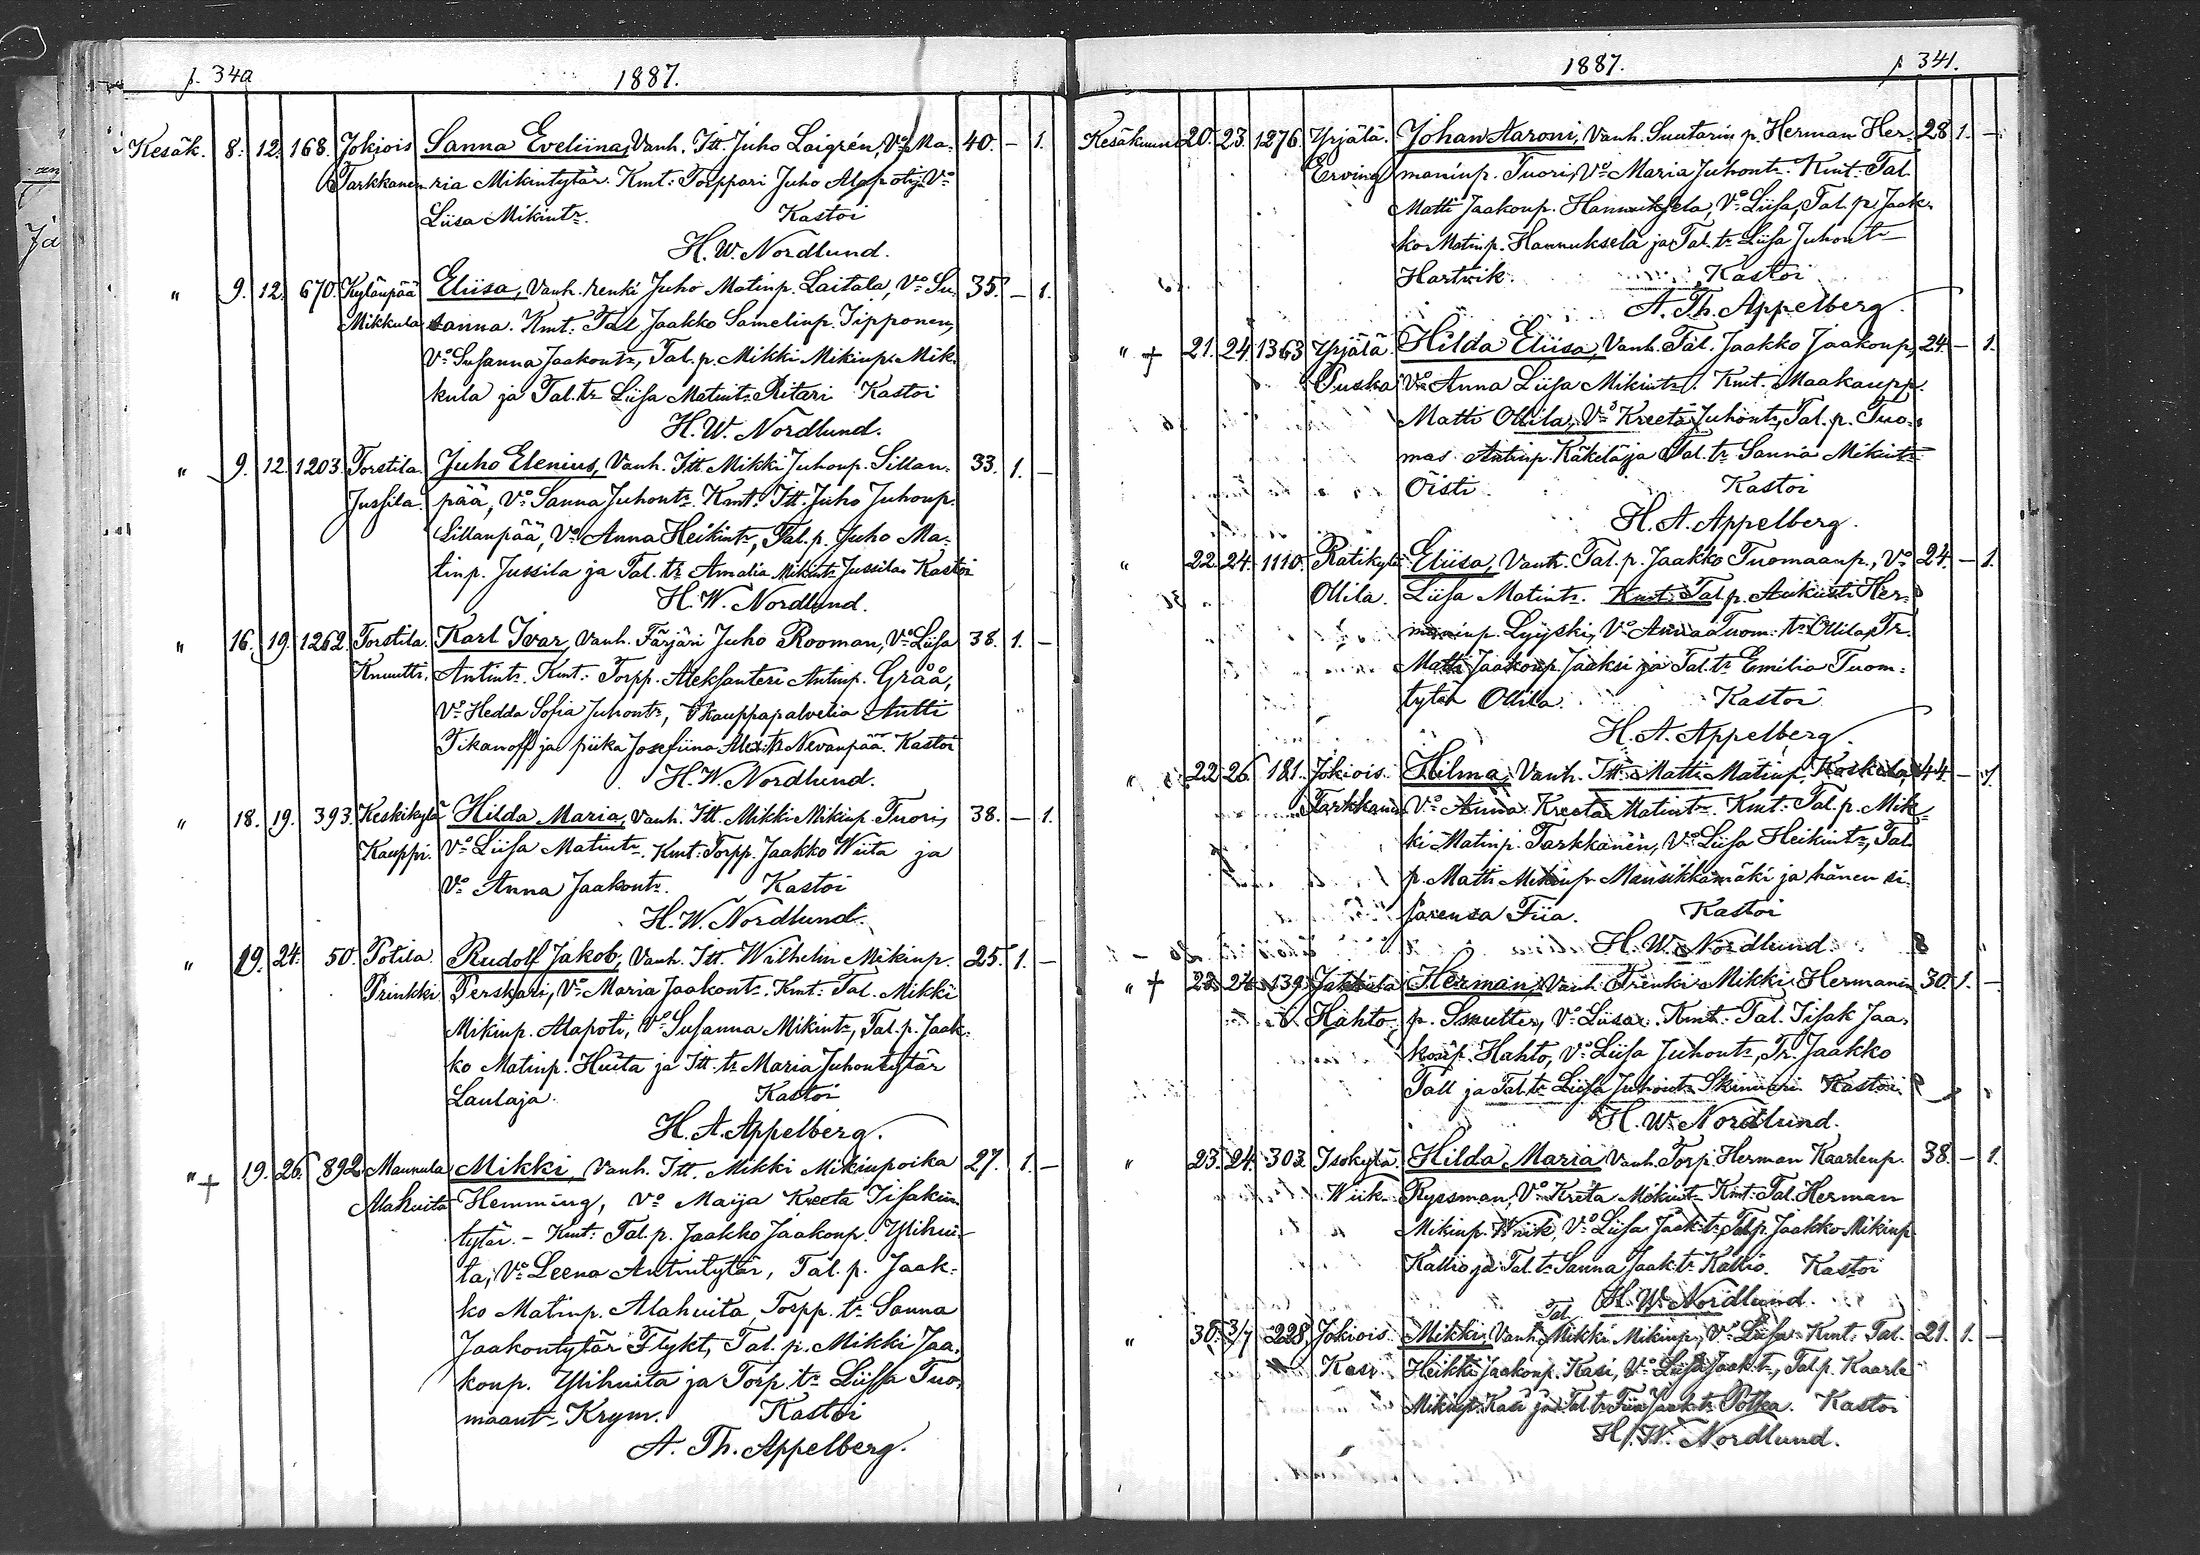 p. 340
1887.
Kesäk. 8. 12. 168. Jokiois Sanna Eveliina, Vanh. Itt. Juho Laigrén, Vo Ma- 40. – 1.
Tarkkanen ria Mikintytär. Kmt: Torppari Juho Alapoti, Vo
Liisa Mikintr. Kastoi
H. W. Nordlund.
" 9. 12. 670. Kylänpää Eliisa, Vanh. renki Juho Matinp. Laitala, Vo Su- 35. – 1.
Mikkula sanna. Kmt: Tal. Jaakko Samelinp. Tipponen,
Vo Susanna Jaakontr, Tal. p. Mikki Mikinp. Mik-
kula ja Tal. tr Liisa Matintr Ritari Kastoi
H. W. Nordlund.
" 9. 12. 1203. Torstila Juho Elenius, Vanh. Itt. Mikki Juhonp. Sillan- 33. 1. –
Jussila. pää, Vo Sanna Juhontr. Kmt: Itt. Juho Juhonp.
Sillanpää, Vo Anna Heikintr, Tal. p. Juho Ma-
tinp. Jussila ja Tal. tr Amalia Mikintr Jussila. Kastoi
H. W. Nordlund.
" 16. 19. 1262. Torstila. Karl Ivar, Vanh. Färjäri Juho Rooman, Vo Liisa 38. 1. –
Knuutti. Antintr. Kmt: Torpp. Aleksanteri Antinp. Gråå,
Vo Hedda Sofia Juhontr, kauppapalvelia Antti
Tikanoff ja piika Josefiina Alex. tr Nevanpää. Kastoi
H. W. Nordlund.
" 18. 19. 393. Keskikylä Hilda Maria, Vanh. Itt. Mikki Mikinp. Tuori, 38. – 1.
Kauppi. Vo Liisa Matintr. Kmt: Torpp. Jaakko Wiita ja
Vo Anna Jaakontr. Kastoi
H. W. Nordlund.
" 19. 24. 50. Potila. Rudolf Jakob, Vanh. Itt. Wilhelm Mikinp. 25. 1. –
Prinkki Perskari, Vo Maria Jaakontr. Kmt: Tal. Mikki
Mikinp. Alapoti, Vo Susanna Mikintr, Tal. p. Jaak-
ko Matinp. Huita ja Itt. tr Maria Juhontytär
Laulaja. Kastoi
H. A. Appelberg.
" + 19. 26. 892. Mannula Mikki, Vanh. Itt. Mikki Mikinpoika 27. 1. –
Alahuita Hemming, Vo Maija Kreeta Iisakin
tytär. – Kmt: Tal. p. Jaakko Jaakonp. Ylihui-
ta, Vo Leena Antintytär, Tal. p. Jaak-
ko Matinp. Alahuita, Torpp. tr Sanna
Jaakontytär Flykt, Tal. p. Mikki Jaa-
konp. Ylihuita ja Torp. tr Liissa Tuo-
maantr Krym. Kastoi
A. Th. Appelberg.
1887.
p 341.
Kesäkuun 20. 23. 1276. Yrjälä. Johan Aaroni, Vanh. Suutarin p. Herman Her- 28. 1. –
Erving maninp. Tuori, Vo Maria Juhontr. Kmt: Tal.
Matti Jaakonp. Hannuksela, Vo Liisa, Tal. p. Jaak-
ko Matinp. Hannuksela ja Tal. tr Liisa Juhontr
Hartvik. Kastoi
A. Th. Appelberg.
" + 21. 24. 1363 Yrjälä Hilda Eliisa, Vanh. Tal. Jaakko Jaakonp, 24. – 1.
Puska Vo Anna Liisa Mikintr. Kmt. Maakaupp.
Matti Ollila, Vo Kreeta Juhontr, Tal. p. Tuo-
mas Antinp. Käkelä ja Tal. tr Sanna Mikintr
Öisti Kastoi
H. A. Appelberg.
" 22. 24. 1110. Ratikylä Eliisa, Vanh. Tal. p. Jaakko Tuomaanp., Vo 24. – 1.
Ollila. Liisa Matintr. Kmt: Tal. p. Aukusti Her-
maninp. Lyyski, Vo Anna Tuom: tr Ollila, Tr.
Matti Jaakonp. Jaaksi ja Tal. tr Emilia Tuom-
tytär Ollila. Kastoi
H. A. Appelberg.
" 22. 26. 181. Jokiois. Hilma, Vanh. Itt. Matti Matinp. Koskela, 44. – 1.
Tarkkanen Vo Anna Kreeta Matintr. Kmt: Tal. p. Mik-
ki Matinp. Tarkkanen, Vo Liisa Heikintr, Tal.
p. Matti Mikinp. Mansikkamäki ja hänen si-
sarensa Fiia. Kastoi
H. W. Nordlund.
" + 23. 24. 139. Jakkula Herman, Vanh. Trenki Mikki Hermanin 30. 1. –
Hahto p. Smutter, Vo Liisa. Kmt: Tal. Iisak Jaa-
konp. Hahto, Vo Liisa Juhontr, Tr. Jaakko
Tall ja Tal. tr Liisa Juhontr Skinnari. Kastoi
H. W. Nordlund.
" 23. 24. 303. Isokylä. Hilda Maria Vanh. Torp. Herman Kaarlenp. 38. – 1.
Wiik. Ryssman, Vo Kreta Mikintr. Kmt: Tal. Herman
Mikinp. Wiik, Vo Liisa Jaak. tr, Tal. p. Jaakko Mikinp.
Kallio ja Tal. tr Sanna Jaak. tr Kallio. Kastoi
H. W. Nordlund.
" 30. 3/7 228. Jokiois. Mikki, Vanh. Tal. Mikki Mikinp., Vo Liisa. Kmt: Tal. 21. 1. –
Kasi Heikki Jaakonp. Kasi, Vo Liisa Jaak. tr, Tal. p. Kaarle
Mikinp. Kasi ja Tal. tr Fiia Jaak. tr Potka. Kastoi
H. W. Nordlund.